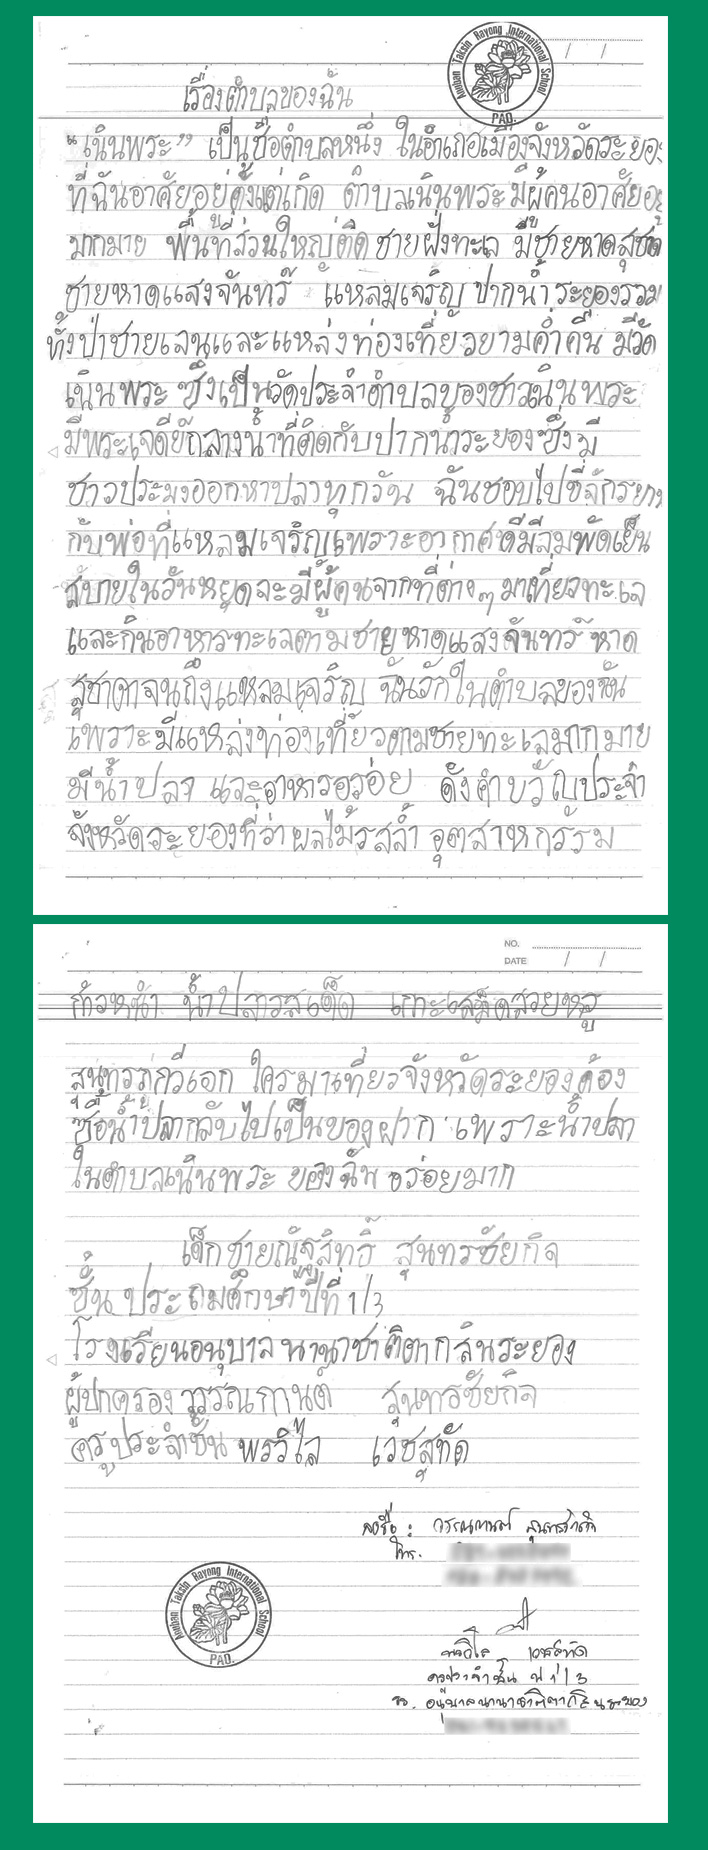 Anuban Taksin Rayong International School
PAD.
/ /
เรื่องตำบลของฉัน
"เนินพระ" เป็นชื่อตำบลหนึ่ง ในอำเภอเมืองจังหวัดระยอง
ที่ฉันอาศัยอยู่ตั้งแต่เกิด ตำบลเนินพระมีผู้คนอาศัยอยู่
มากมาย พื้นที่ส่วนใหญ่ติดชายฝั่งทะเล มีชายหาดสุชาดา
ชายหาดแสงจันทร์ แหลมเจริญ ปากน้ำระยองรวม
ทั้งป่าชายเลนและแหล่งท่องเที่ยวยามค่ำคืน มีวัด
เนินพระ ซึ่งเป็นวัดประจำตำบลของชาวเนินพระ
มีพระเจดีย์กลางน้ำที่ติดกับปากน้ำระยองซึ่งมี
ชาวประมงออกหาปลาทุกวัน ฉันชอบไปขี่จักรยาน
กับพ่อที่แหลมเจริญเพราะอากาศดีมีลมพัดเย็น
สบายในวันหยุดจะมีผู้คนจากที่ต่างๆ มาเที่ยวทะเล
และกินอาหารทะเลตามชายหาดแสงจันทร์ หาด
สุชาดาจนถึงแหลมเจริญ ฉันรักในตำบลของฉัน
เพราะมีแหล่งท่องเที่ยวตามชายทะเลมากมาย
มีน้ำปลา และอาหารอร่อย ดังคำขวัญประจำ
จังหวัดระยองที่ว่าผลไม้รสล้ำ อุตสาหกรรม
NO.
DATE / /
ก้าวหน้า น้ำปลารสเด็ด เกาะเสม็ดสวยหรู
สุนทรภู่กวีเอก ใครมาเที่ยวจังหวัดระยองต้อง
ซื้อน้ำปลากลับไปเป็นของฝาก เพราะน้ำปลา
ในตำบลเนินพระ ของฉัน อร่อยมาก
เด็กชายณัฐสิทธิ์ สุนทรชัยกิจ
ชั้น ประถมศึกษาปีที่ 1/3
โรงเรียนอนุบาลนานาชาติตากสินระยอง
ผู้ปกครอง วรรณกานต์ สุนทรชัยกิจ
ครูประจำชั้น พรวิไล เวชสุทัด
ลงชื่อ : วรรณกานต์ สุนทรชัยกิจ
โทร.
Anuban Taksin Rayong International School
PAD.
พรวิไล เวชสุทัด
ครูประจำชั้น ป 1/3
รร. อนุบาลนานาชาติตากสินระยอง